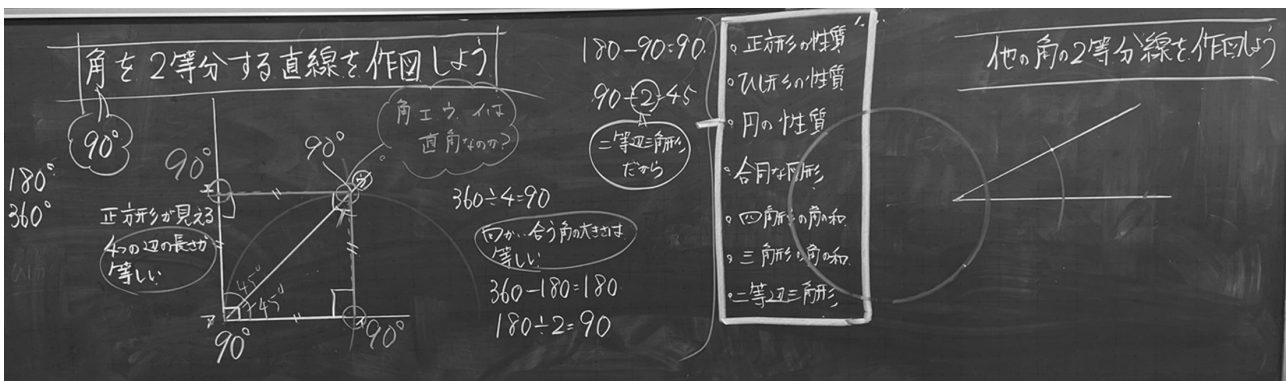 角を2等分する直線を作図しよう
90°
180°
360°
90°
正方形が見える
4つの辺の長さが
等しい
45°
45°
90°
90°
90°
角エウイは
直角なのか?
360÷4=90
向かい合う角の大きさは
等しい
360-180=180
180÷2=90
180-90=90
90÷2=45
二等辺三角形
だから
・正方形の性質
・ひし形の性質
・円の性質
・合同な図形
・四角形の角の和
・三角形の角の和
・二等辺三角形
他の角の2等分線を作図しよう